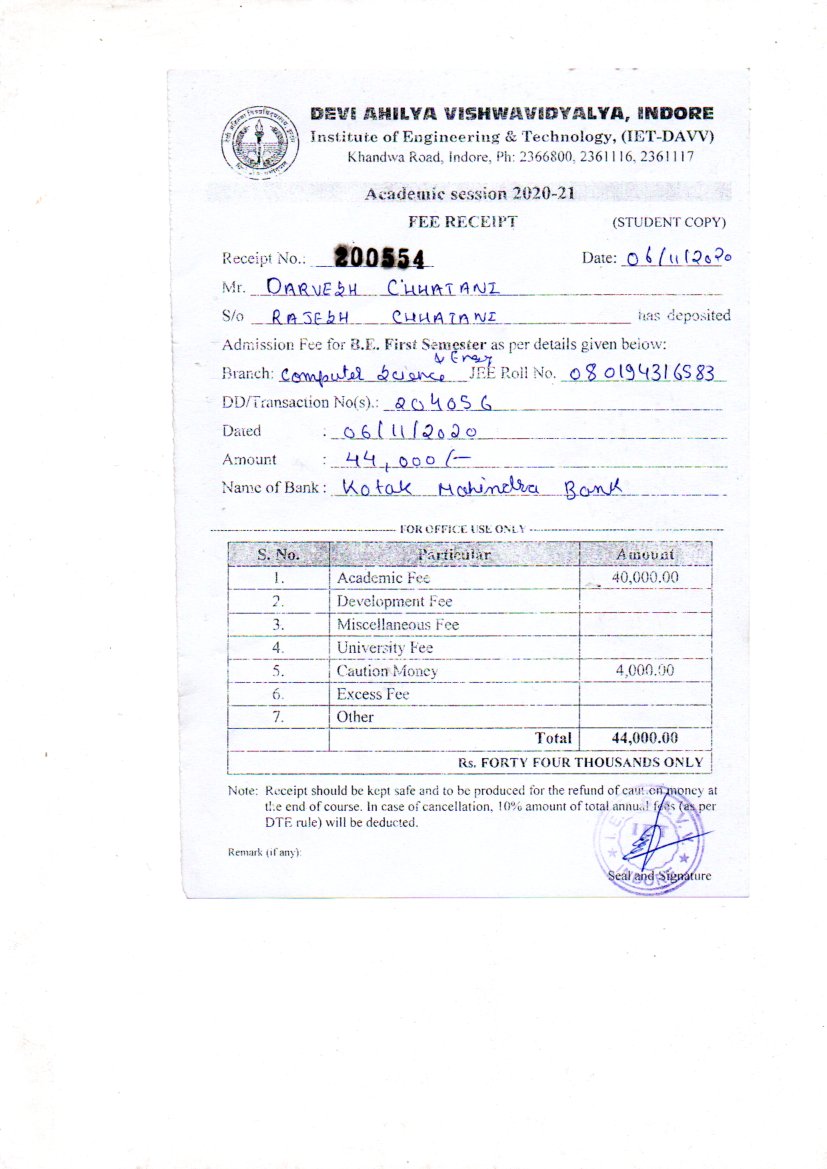 DEVI AHILYA VISHWAVIDYALYA, INDORE
Institute of Engineering & Technology, (IET-DAVV)
Khandwa Road, Indore, Ph: 2366800, 2361116, 2361117
Academic session 2020-21
FEE RECEIPT (STUDENT COPY)
Receipt No.: 200554 Date: 06/11/2020
Mr. DARVESH CHHATANI
S/o RAJESH CHHATANI has deposited
Admission Fee for B.E. First Semester as per details given below:
& Engg
Branch: Computer Science JEE Roll No. 080194316583
DD/Transaction No(s).: 204056
Dated : 06/11/2020
Amount : 44,000/-
Name of Bank : Kotak Mahindra Bank
FOR OFFICE USE ONLY
S. No. Particular Amount
1. Academic Fee 40,000.00
2. Development Fee
3. Miscellaneous Fee
4. University Fee
5. Caution Money 4,000.00
6. Excess Fee
7. Other
Total 44,000.00
Rs. FORTY FOUR THOUSANDS ONLY
Note: Receipt should be kept safe and to be produced for the refund of caution money at
the end of course. In case of cancellation, 10% amount of total annual fees (as per
DTE rule) will be deducted.
Remark (if any):
IET
INDORE
Seal and Signature